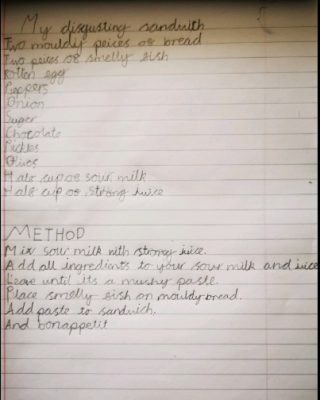 My disgusting sandwith
Two mouldy peices of bread
Two peices of smelly fish
Rotten egg
Peppers
Onion
Suger
Chocolate
Pickles
Olives
Half cup of sour milk
Half cup of strong juice
METHOD
Mix sour milk with strong juice.
Add all ingredients to your sour milk and juice
Leave until its a mushy paste.
Place smelly fish on mouldy bread.
Add paste to sandwich.
And bonappetit